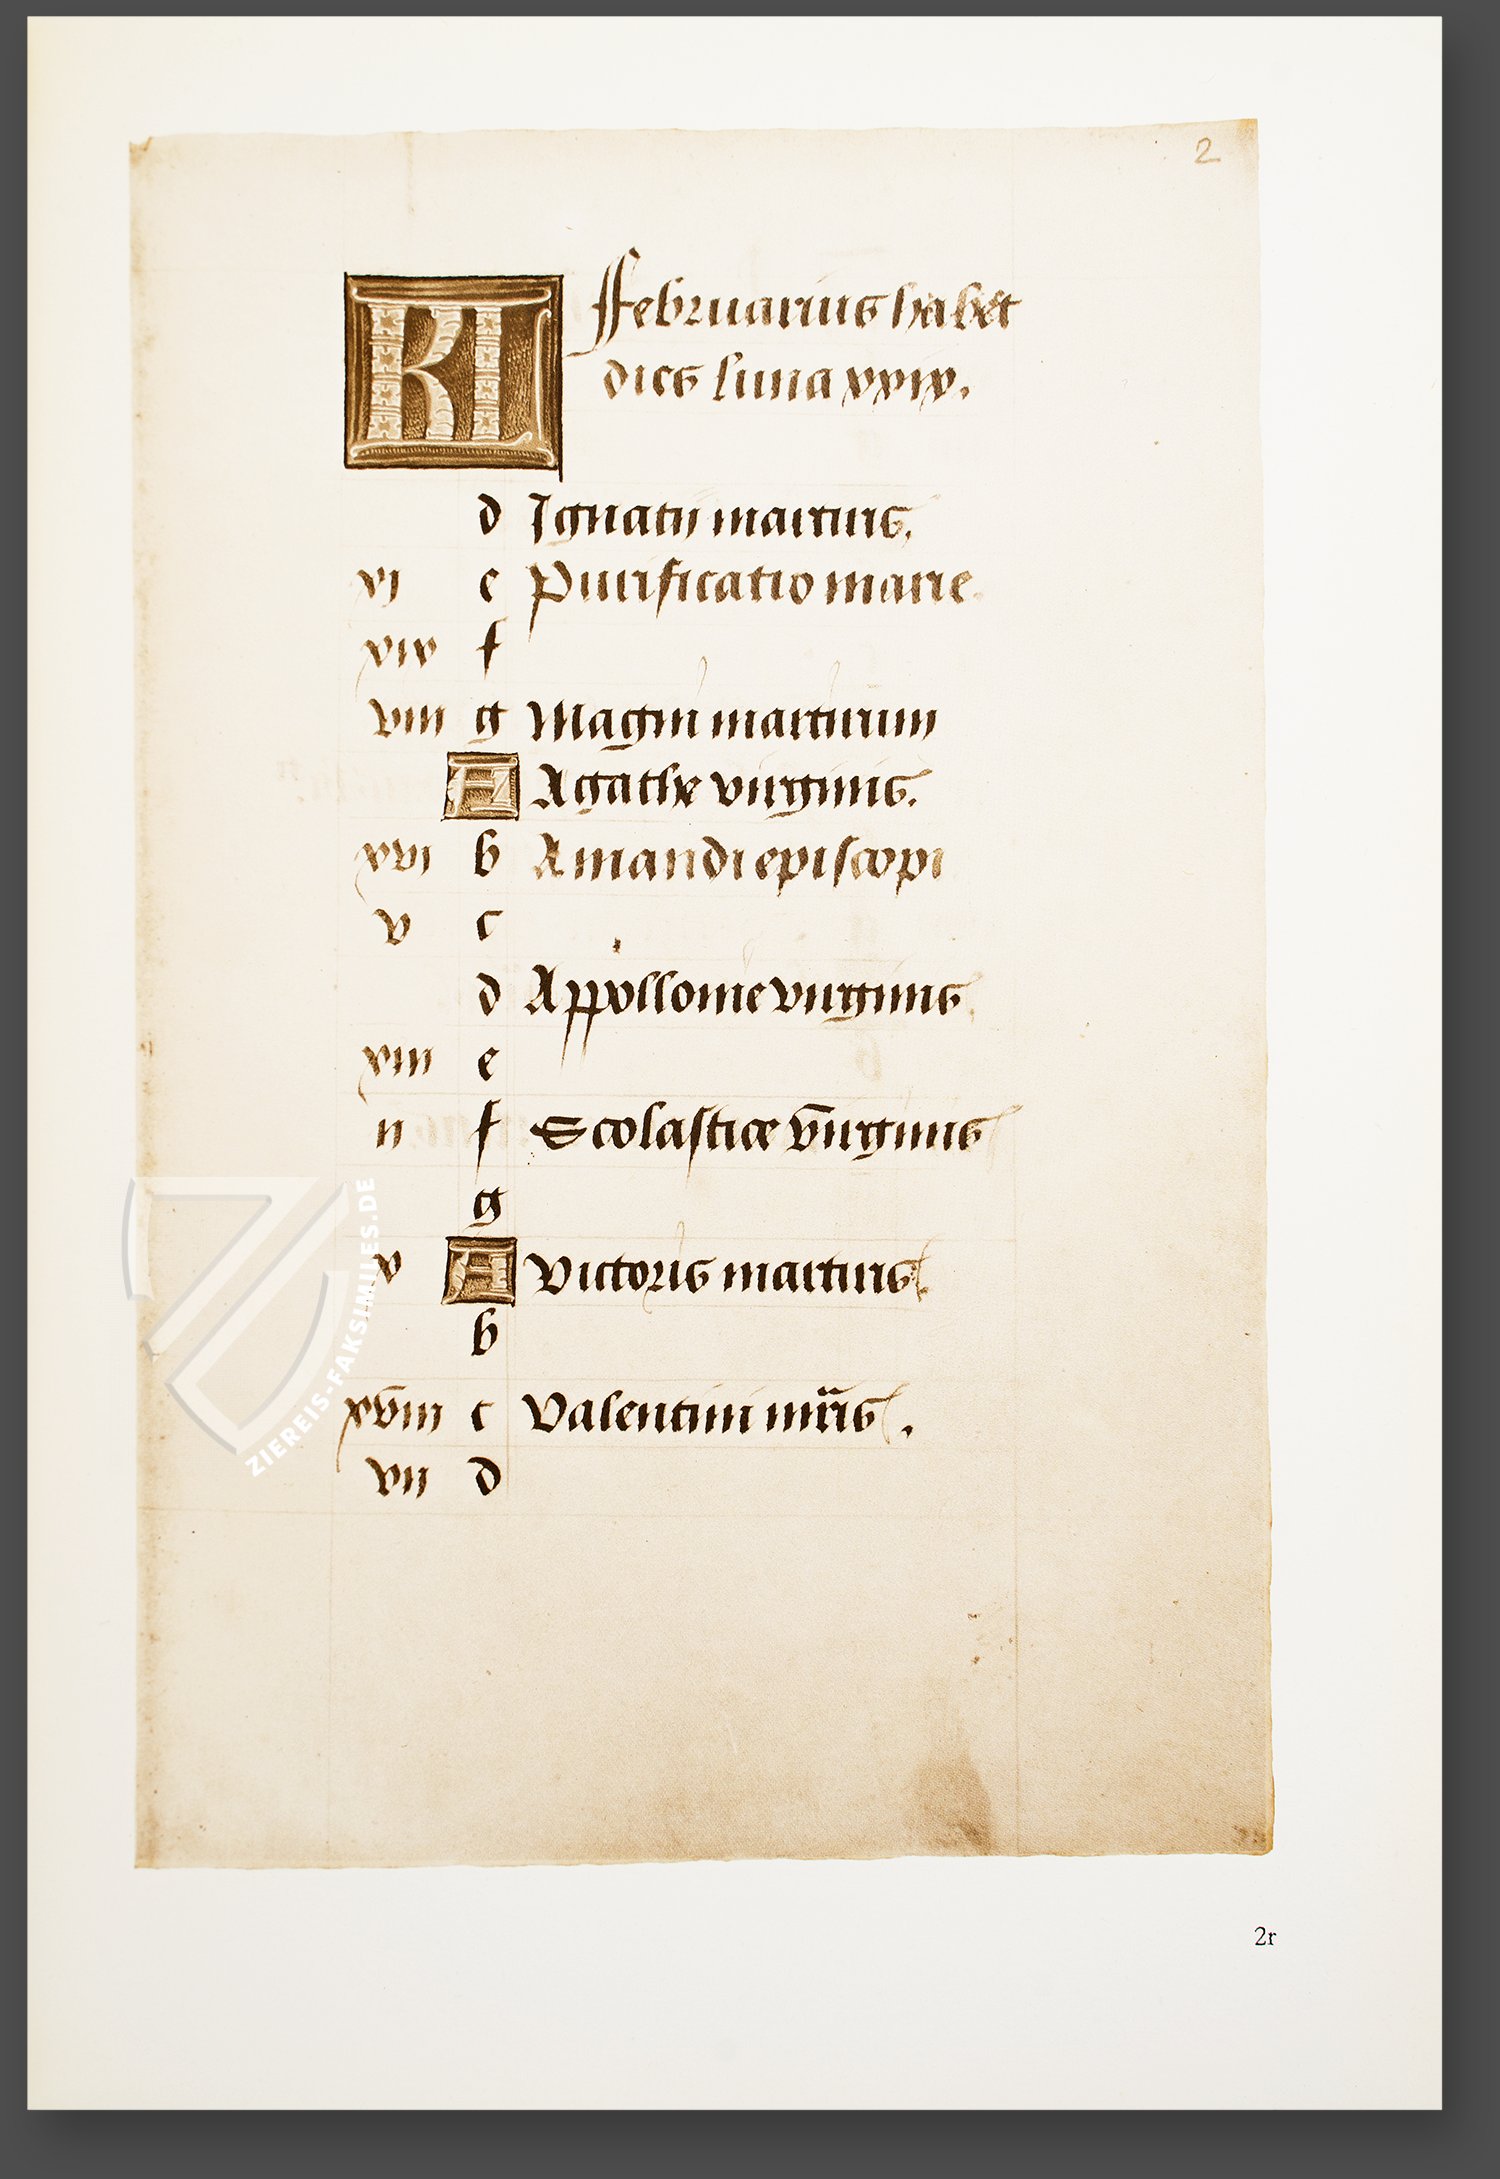 2
Kl ffebruarius habet
dies luna xxix.
d Ignatij martiris.
xi e Purificatio marie.
xix f
viii g Magni martirum
A Agathe virginis.
xvi b Amandi episcopi
v c
d Appollonie virginis.
xiii e
ii f Scolastice virginis
g
x A Victoris martiris.
b
xviii c Valentini mris.
vii d
ZIEREIS-FAKSIMILES.DE
2r